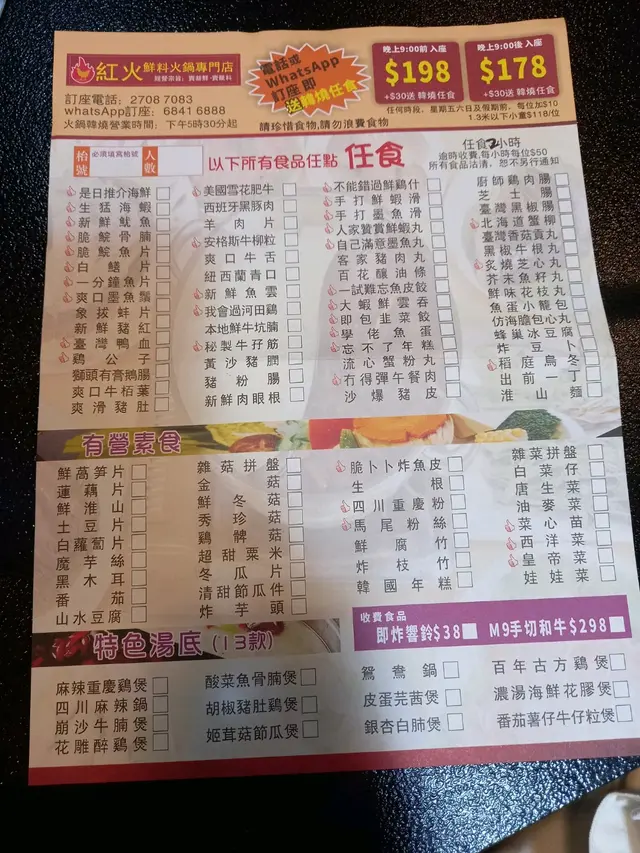 紅火鮮料火鍋專門店
電話或
WhatsApp
訂座 即
送韓燒任食
晚上9:00前 入座
$198
+$30送 韓燒任食
晚上9:00後 入座
$178
+$30送 韓燒任食
訂座電話：2708 7083
whatsApp訂座：6841 6888
火鍋韓燒營業時間：下午5時30分起
請珍惜食物,請勿浪費食物
任何時段，星期五六日及假期前，每位加$10
1.3米以下小童$118/位
枱號
必須填寫枱號
人數
以下所有食品任點 任食
任食2小時
逾時收費,每小時每位$50
所有食品沽清，恕不另行通知
是日推介海鮮
生猛海蝦
新鮮魷魚
脆鯇骨腩
脆鯇魚片
白鱔片
一分鐘魚片
爽口墨魚鬚
象拔蚌片
新鮮豬紅
臺灣鴨血
鷄公子
獅頭有膏鵝腸
爽口牛栢葉
爽滑豬肚
美國雪花肥牛
西班牙黑豚肉
羊肉片
安格斯牛柳粒
爽口牛舌
紐西蘭青口
新鮮魚雲
我會過河田鷄
本地鮮牛坑腩
秘製牛孖筋
黃沙豬膶
豬粉腸
新鮮肉眼根
不能錯過鮮鷄什
手打鮮蝦滑
手打墨魚滑
人家贊賞鮮蝦丸
自己滿意墨魚丸
客家豬肉丸
百花釀油條
一試難忘魚皮餃
大蝦鮮雲吞
即包韭菜餃
學佬魚蛋
忘不了年糕
流心蟹粉丸
冇得彈午餐肉
沙爆豬皮
廚師鷄肉腸
芝士腸
臺灣黑椒腸
北海道蟹柳
臺灣香菇貢丸
黑椒牛根丸
炙燒芝心丸
芥末魚籽丸
鮮味花枝丸
魚蛋小籠包
仿海膽包心丸
蜂巢冰豆腐
炸豆卜
稻庭烏冬
出前一丁
淮山麵
有營素食
鮮萵笋片
蓮藕片
鮮淮山
土豆片
白蘿蔔片
魔芋絲
黑木耳
番茄
山水豆腐
雜菇拼盤
金菇
鮮冬菇
秀珍菇
鷄髀菇
超甜粟米
冬瓜片
清甜節瓜件
炸芋頭
脆卜卜炸魚皮
生根
四川重慶粉
馬尾粉絲
鮮腐竹
炸枝竹
韓國年糕
雜菜拼盤
白菜仔
唐生菜
油麥菜
菜心苗
西洋菜
皇帝菜
娃娃菜
收費食品
即炸響鈴$38 M9手切和牛$298
特色湯底(13款)
麻辣重慶鷄煲
四川麻辣鍋
崩沙牛腩煲
花雕醉鷄煲
酸菜魚骨腩煲
胡椒豬肚鷄煲
姬茸菇節瓜煲
鴛鴦鍋
皮蛋芫茜煲
銀杏白肺煲
百年古方鷄煲
濃湯海鮮花膠煲
番茄薯仔牛仔粒煲